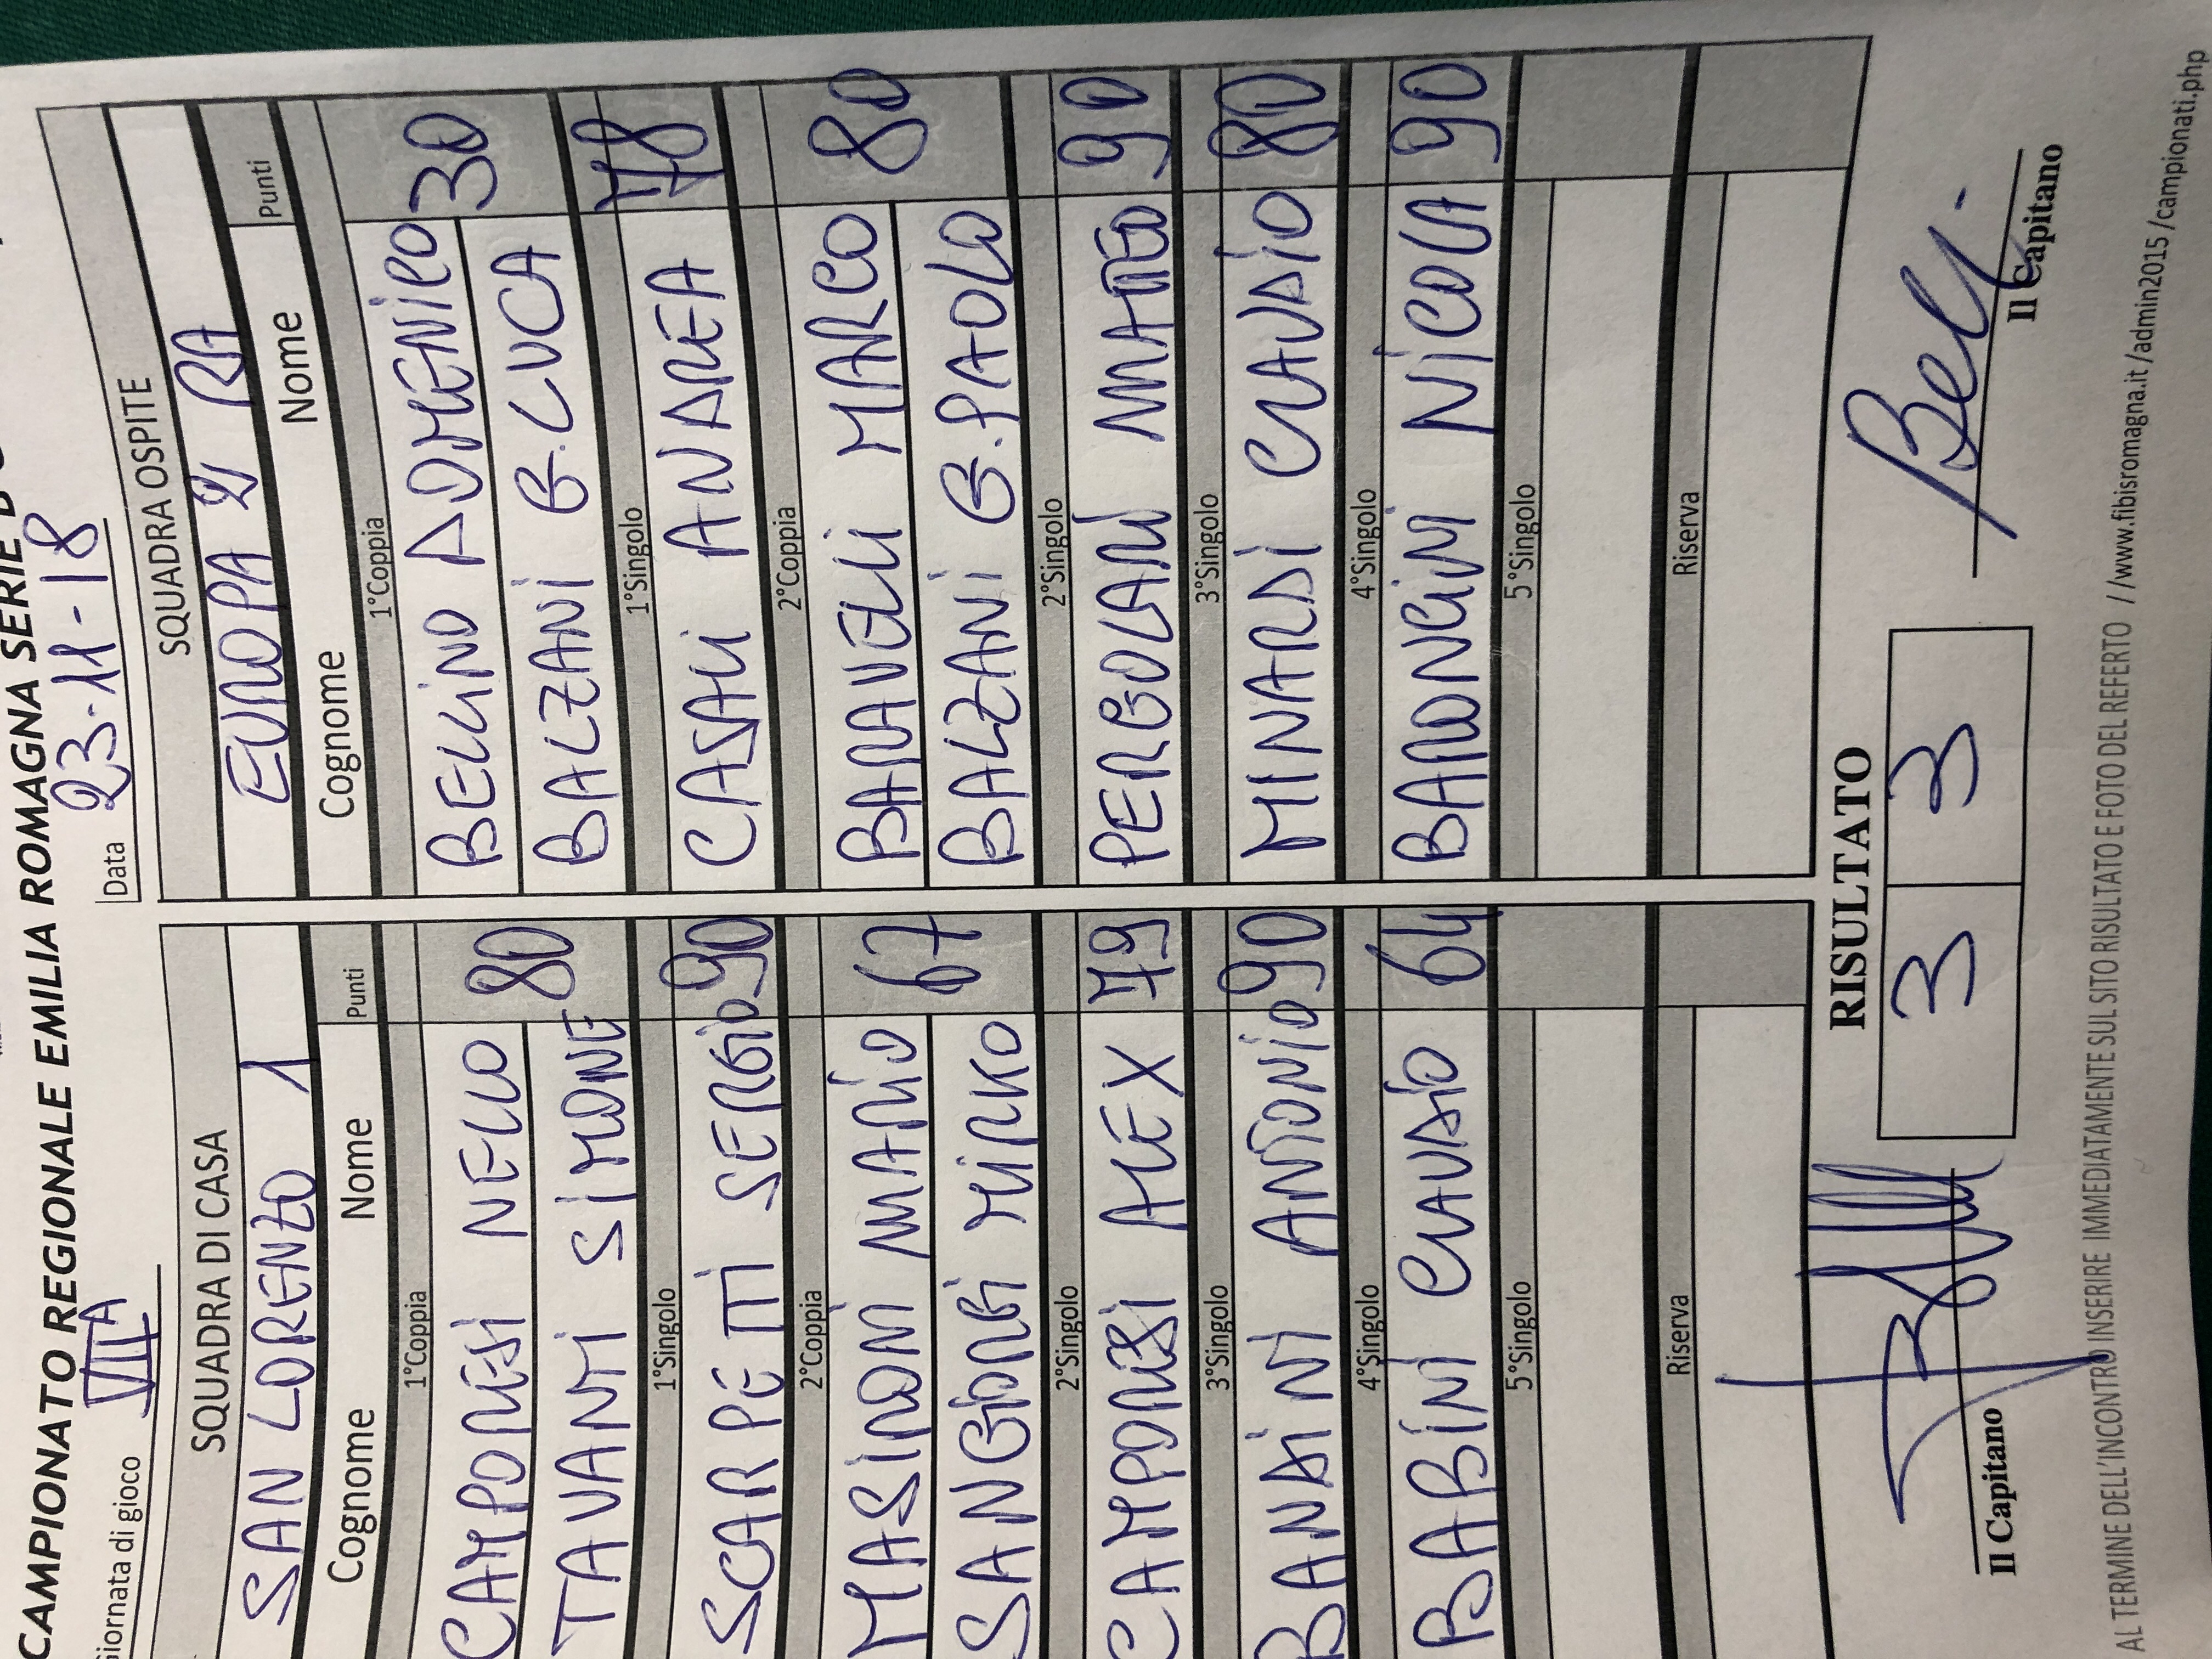 CAMPIONATO REGIONALE EMILIA ROMAGNA SERIE
Giornata di gioco VIIIA Data 23-11-18
SQUADRA DI CASA SQUADRA OSPITE
SAN LORENZO 1 EUROPA 2 RA
Cognome Nome Punti Cognome Nome Punti
1°Coppia 1°Coppia
CAMPORESI NELLO 80 BELLINO DOMENICO 30
TAVANTI SIMONE BALZANI G.LUCA
1°Singolo 1°Singolo
SCARPETTI SERGIO 90 CASALI ANDREA 78
2°Coppia 2°Coppia
MASIRONI MARIO 67 BARAVELLI MARCO 80
SANGIORGI MIRKO BALZANI G.PAOLO
2°Singolo 2°Singolo
CAMPORESI ALEX 79 PERGOLANI MATTEO 90
3°Singolo 3°Singolo
BANDINI ANTONIO 90 MINARDI CLAUDIO 80
4°Singolo 4°Singolo
BABINI CLAUDIO 64 BARONCINI NICOLA 90
5°Singolo 5°Singolo
Riserva Riserva
RISULTATO
3 3
Il Capitano Il Capitano
AL TERMINE DELL'INCONTRO INSERIRE IMMEDIATAMENTE SUL SITO RISULTATO E FOTO DEL REFERTO //www.fibisromagna.it/admin2015/campionati.php